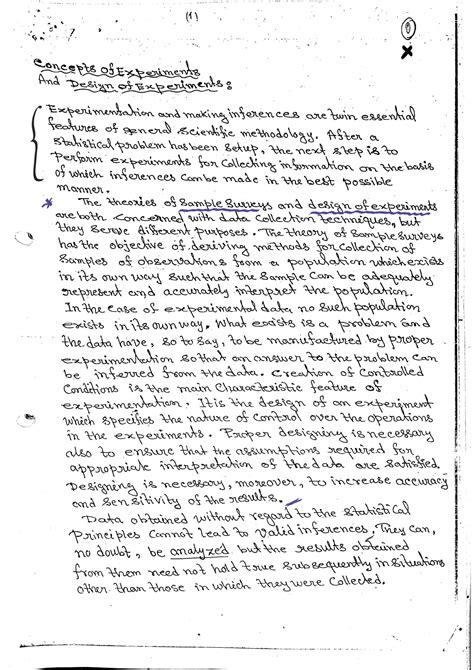 (1)
1
Concepts Of Experiments
And Design of Experiments:
Experimentation and making inferences are twin essential
features of general scientific methodology. After a
statistical problem has been setup, the next step is to
perform experiments for collecting information on the basis
of which inferences can be made in the best possible
manner.
The theories of Sample Surveys and design of experiments
are both concerned with data collection techniques, but
they serve different purposes. The theory of sample surveys
has the objective of deriving methods for collection of
samples of observations from a population which exists
in its own way such that the sample can be adequately
represent and accurately interpret the population.
In the case of experimental data, no such population
exists in its own way. What exists is a problem and
the data have, so to say, to be manufactured by proper
experimentation so that an answer to the problem can
be inferred from the data. Creation of controlled
conditions is the main characteristic feature of
experimentation. It is the design of an experiment
which specifies the nature of control over the operations
in the experiments. Proper designing is necessary
also to ensure that the assumptions required for
appropriate interpretation of the data are satisfied.
Designing is necessary, moreover, to increase accuracy
and sensitivity of the results.
Data obtained without regard to the statistical
principles cannot lead to valid inferences. They can,
no doubt, be analyzed but the results obtained
from them need not hold true subsequently in situations
other than those in which they were collected.